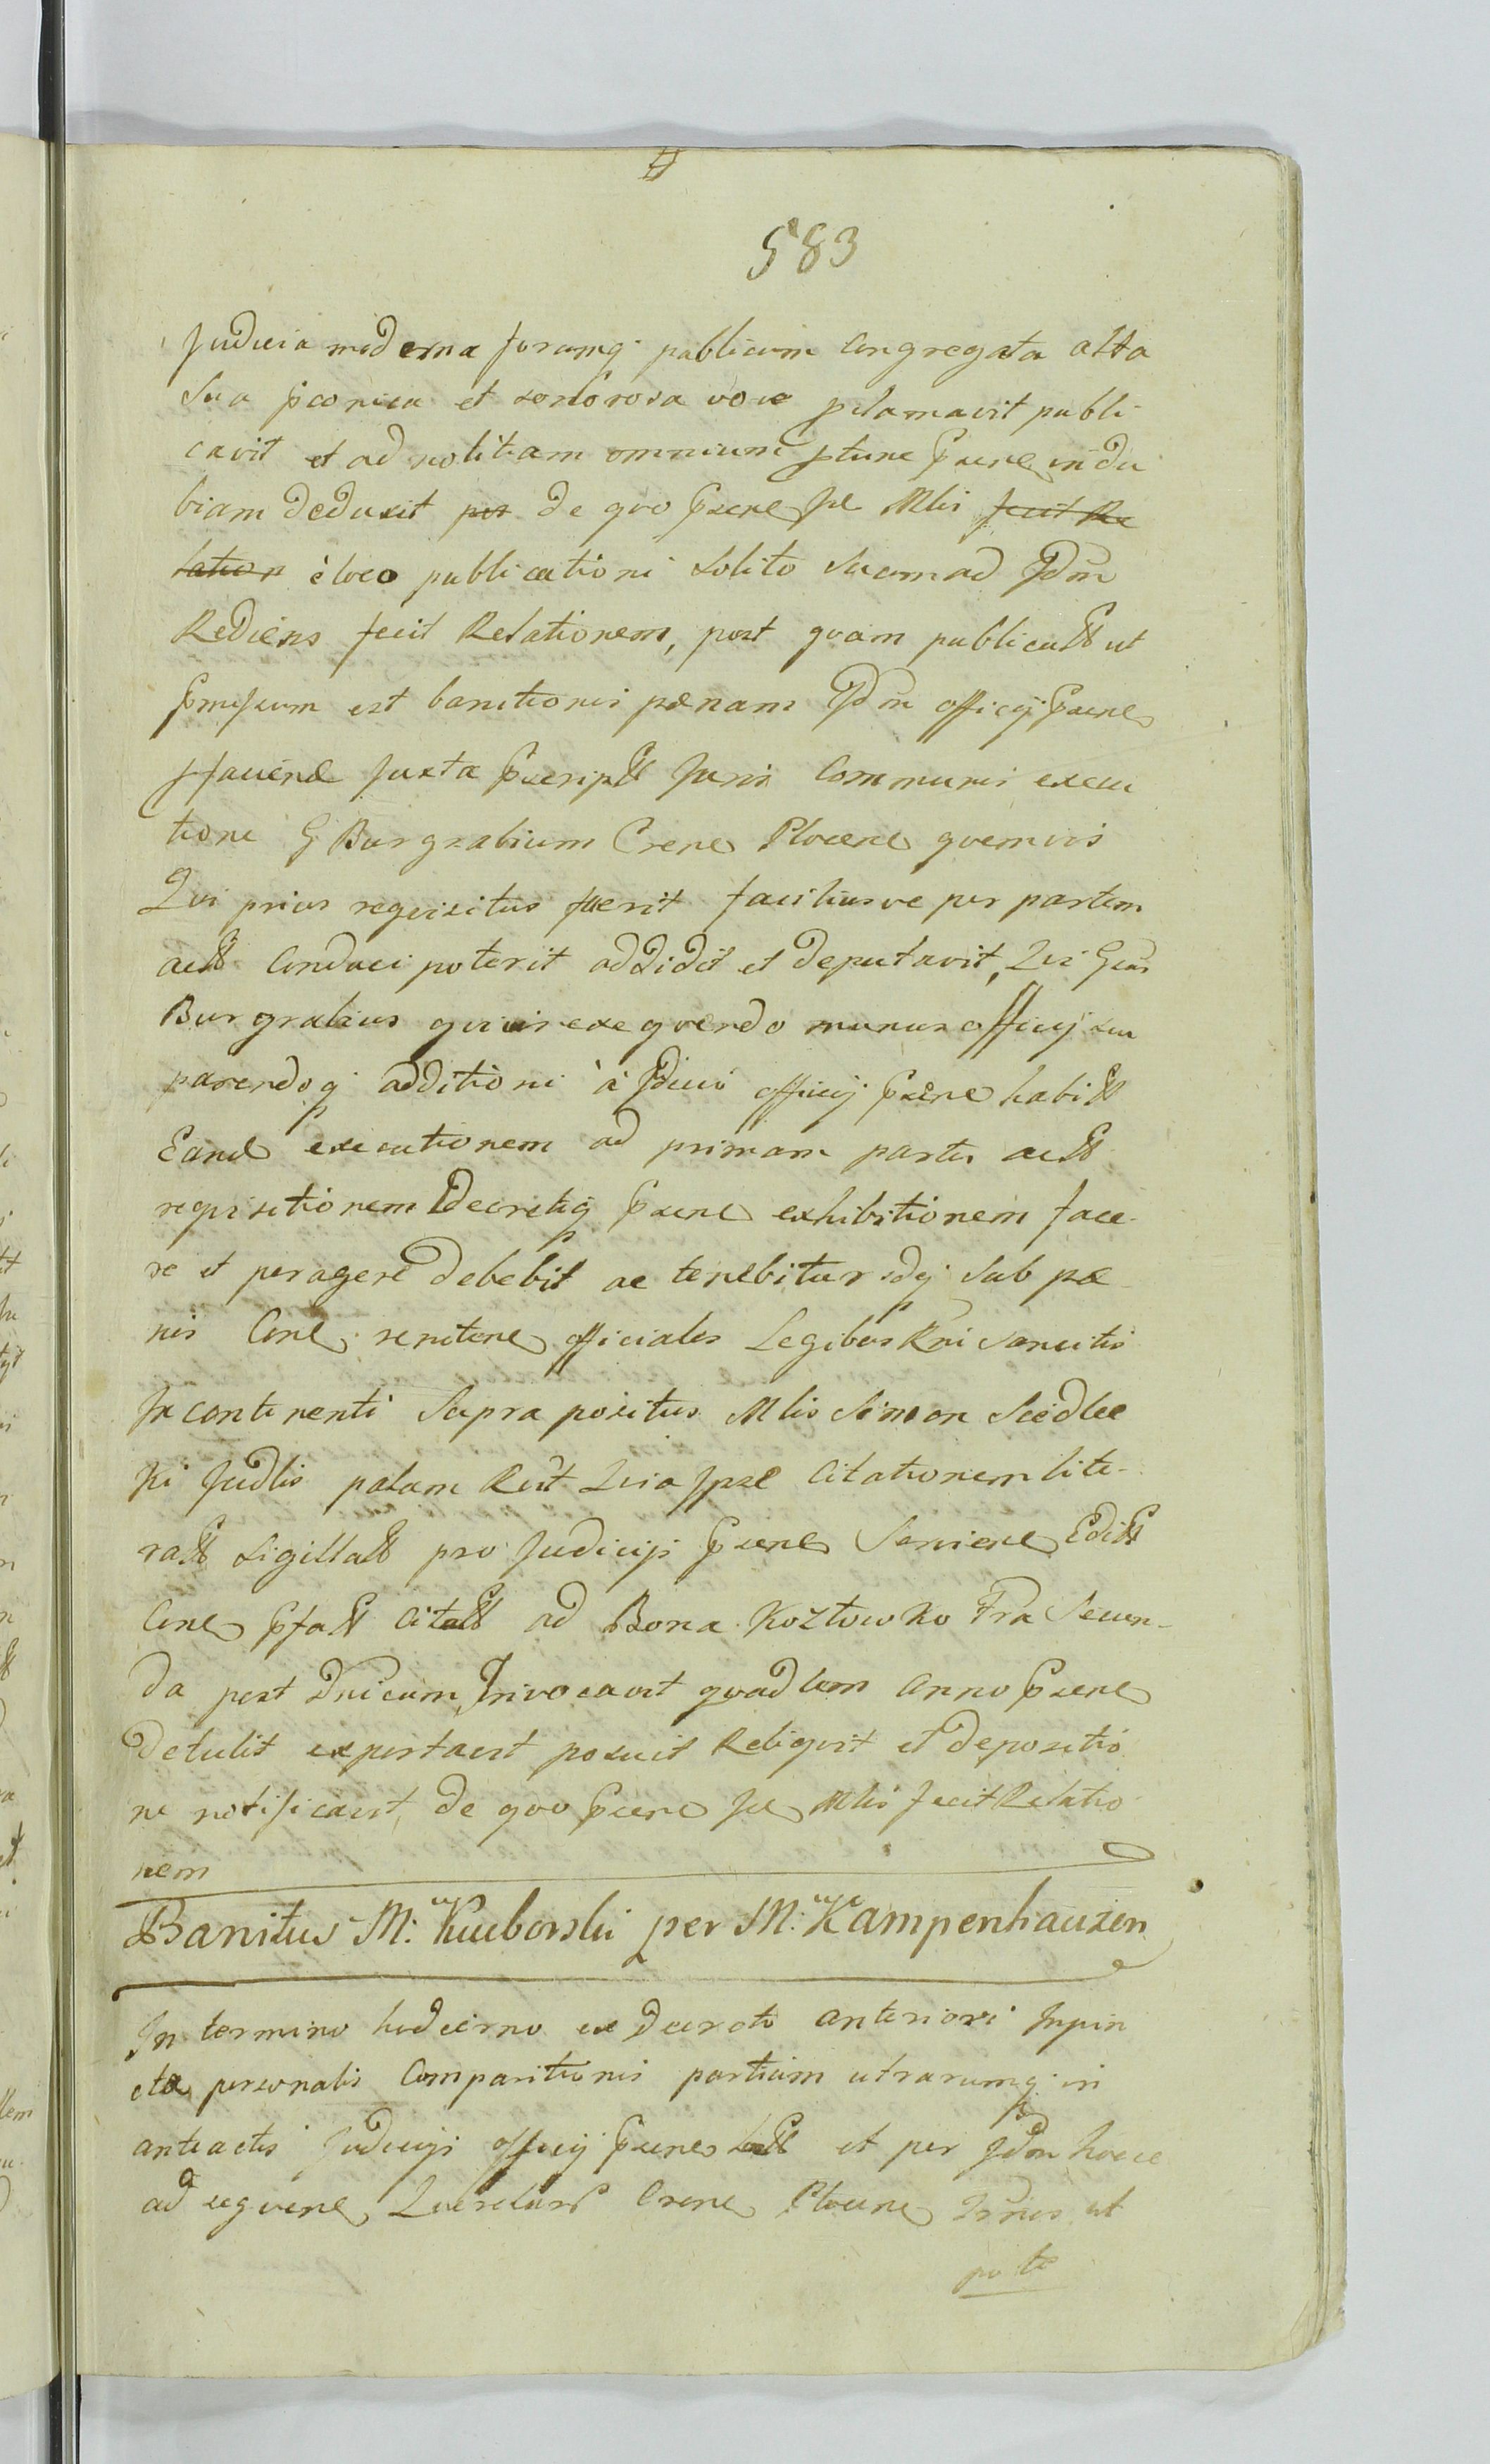 583
Judicia moderna forumq publicum Congregata alta
Sua pconica et sonorosa voce pclamavit publi-
cavit et ad notitiam omnium ptunc psene indu
biam deduxit per de quo psene se Mlis fecit Re
lation è loco publicationi solito suum ad Jdm
Rediens fecit Relationem, post quam publicatt ut
pmissum est banitionis pænam Jdm officij psene
pfauene Juxta pscriptt Juris Communis execu
tione G Burgrabium Crene Plocene quemvis
Qui prius requisitus fuerit faciliusve per partem
actt Conduci poterit addidit et deputavit, Qui Gsus
Burgrabius quivis exequendo munus officij sui
parendoq additioni à Jdicio officij psene habitt
Eand executionem ad primam partis actt
requisitionem Decretiq psene exhibitionem face-
re et peragere debebit ac tenebitur idq sub pæ
nis Cone renitene officiales Legibus Rni sancitis
In continenti Supra positus Mlis Simon Siedlec
ki Judlis palam Recit Quia Ipse Citationem lite-
ratt Sigillatt pro Judicijs psene Serviene Editt
Cone pfatt Citatt ad Bona Kozłowko Fria Secun-
da post Dnicam Invocavit quadlem Anno psene
detulit exportavit posuit Reliquit et depositio
ne notificavit, de quo psene se Mlis fecit Relatio
nem
Banitus M: Kuuborski per M: Kampenhauzen
In termino hodierno ex Decreto anteriori Inpin
cta personalis Comparitionis partium utrarumq in
anteactis Judicijs officij psene latt et per Jdm hocce
ad seqvene Querelarum Crene Plocene Trnos ut
pote